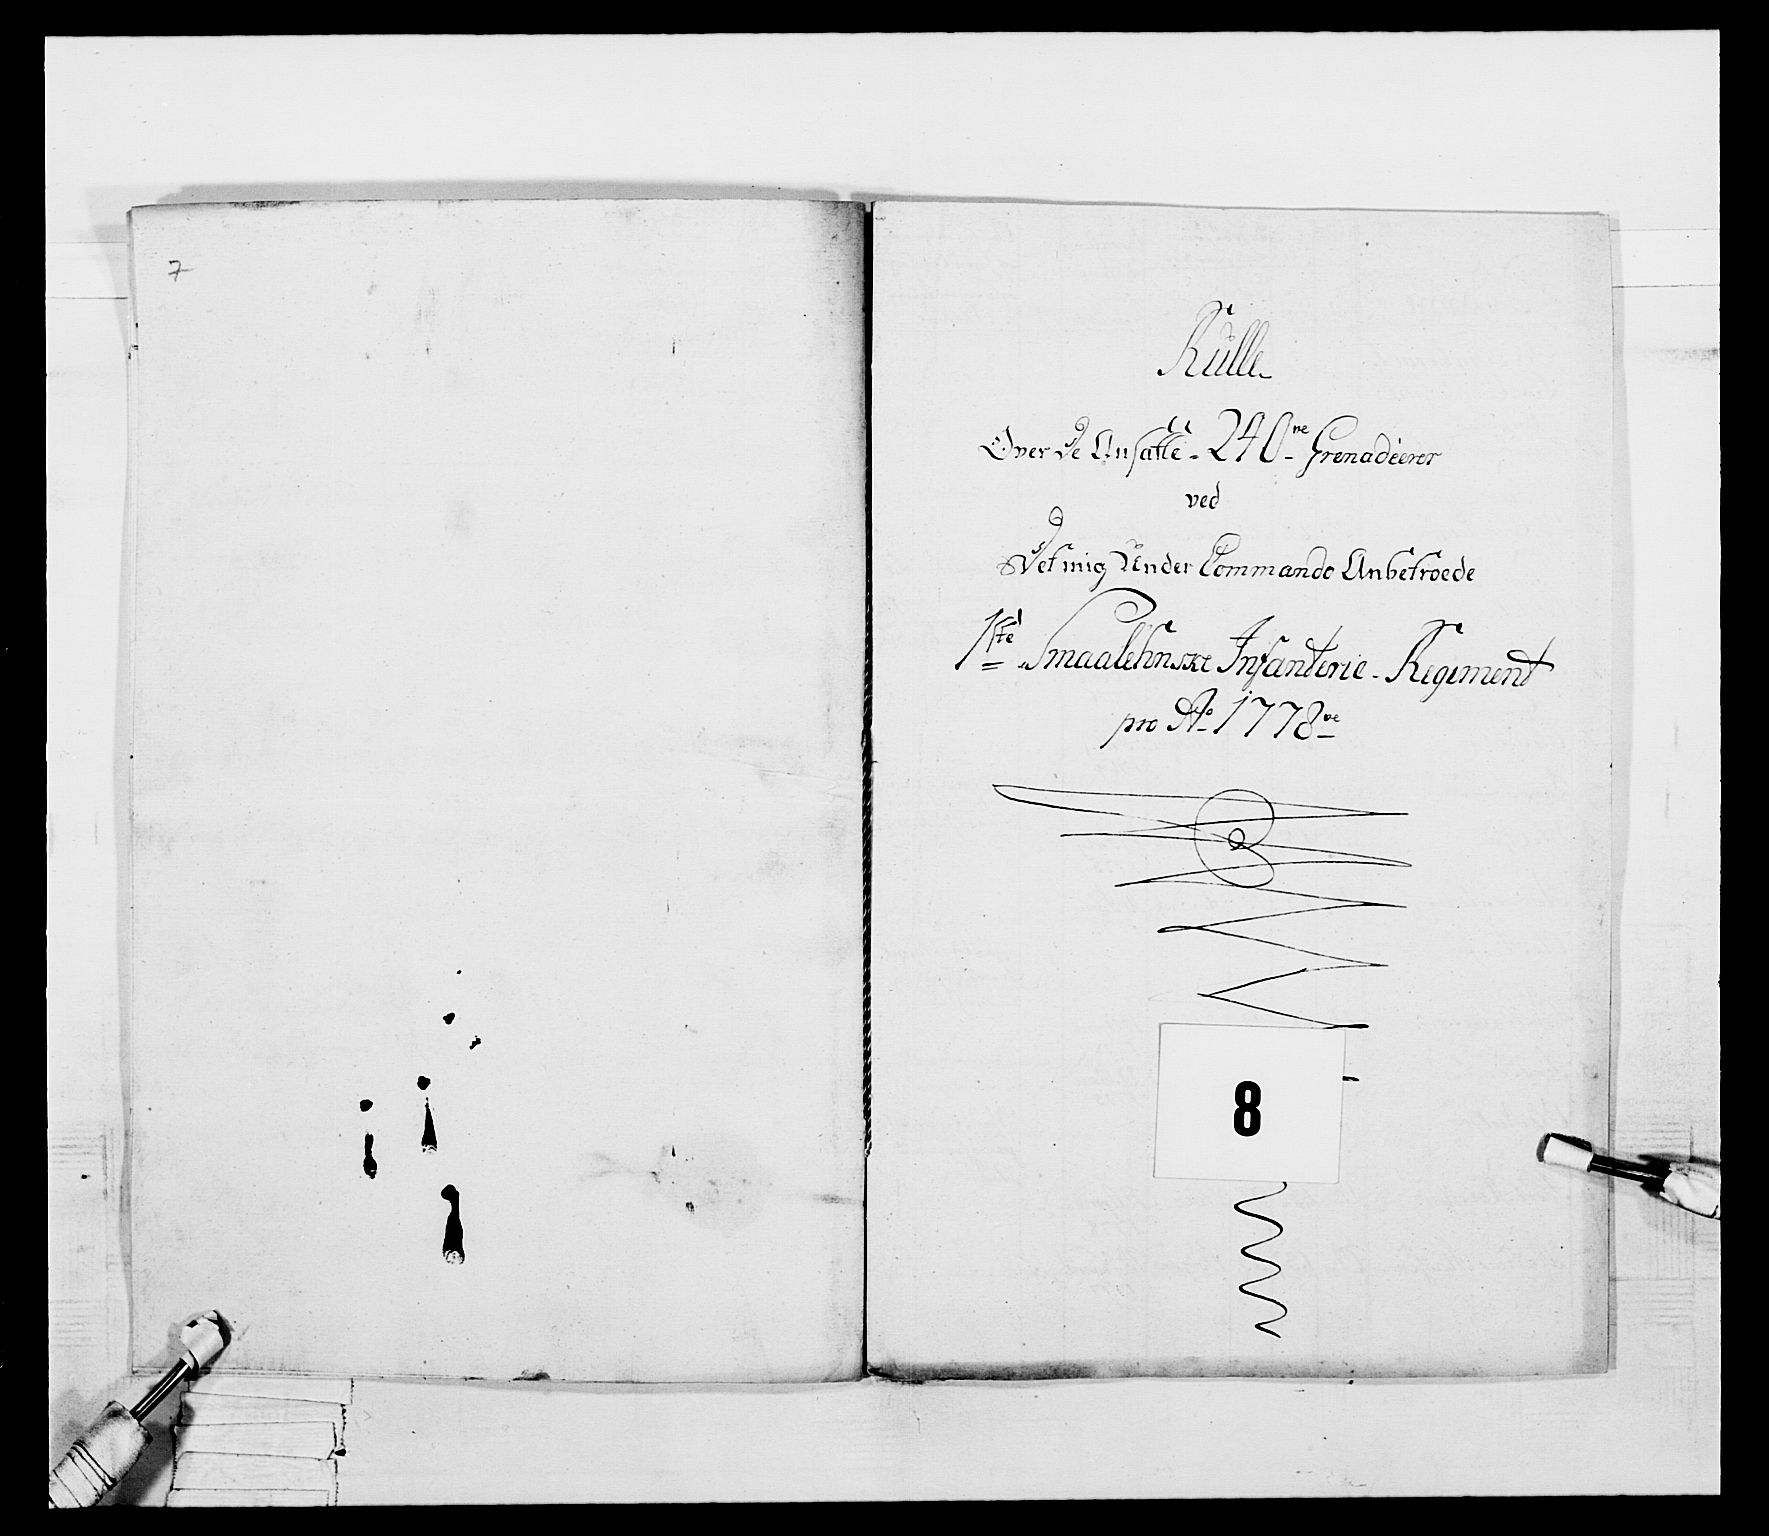 7
Rulle
Over De Ansatte 240ve Grenadeerer
ved
Det mig Under Commando Anbetroede
1ste Smaalehnske Infanterie-Regiment
pro Ao 1778ve
8